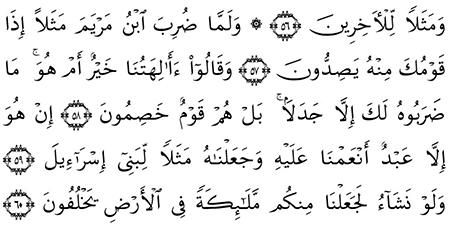 وَمَثَلًا لِّلْـَٔاخِرِينَ ۝٥٦ ۞ وَلَمَّا ضُرِبَ ٱبْنُ مَرْيَمَ مَثَلًا إِذَا
قَوْمُكَ مِنْهُ يَصِدُّونَ ۝٥٧ وَقَالُوٓا۟ ءَأَـٰلِهَتُنَا خَيْرٌ أَمْ هُوَ ۚ مَا
ضَرَبُوهُ لَكَ إِلَّا جَدَلًۢا ۚ بَلْ هُمْ قَوْمٌ خَصِمُونَ ۝٥٨ إِنْ هُوَ
إِلَّا عَبْدٌ أَنْعَمْنَا عَلَيْهِ وَجَعَلْنَـٰهُ مَثَلًا لِّبَنِىٓ إِسْرَٰٓءِيلَ ۝٥٩
وَلَوْ نَشَآءُ لَجَعَلْنَا مِنكُم مَّلَـٰٓئِكَةً فِى ٱلْأَرْضِ يَخْلُفُونَ ۝٦٠